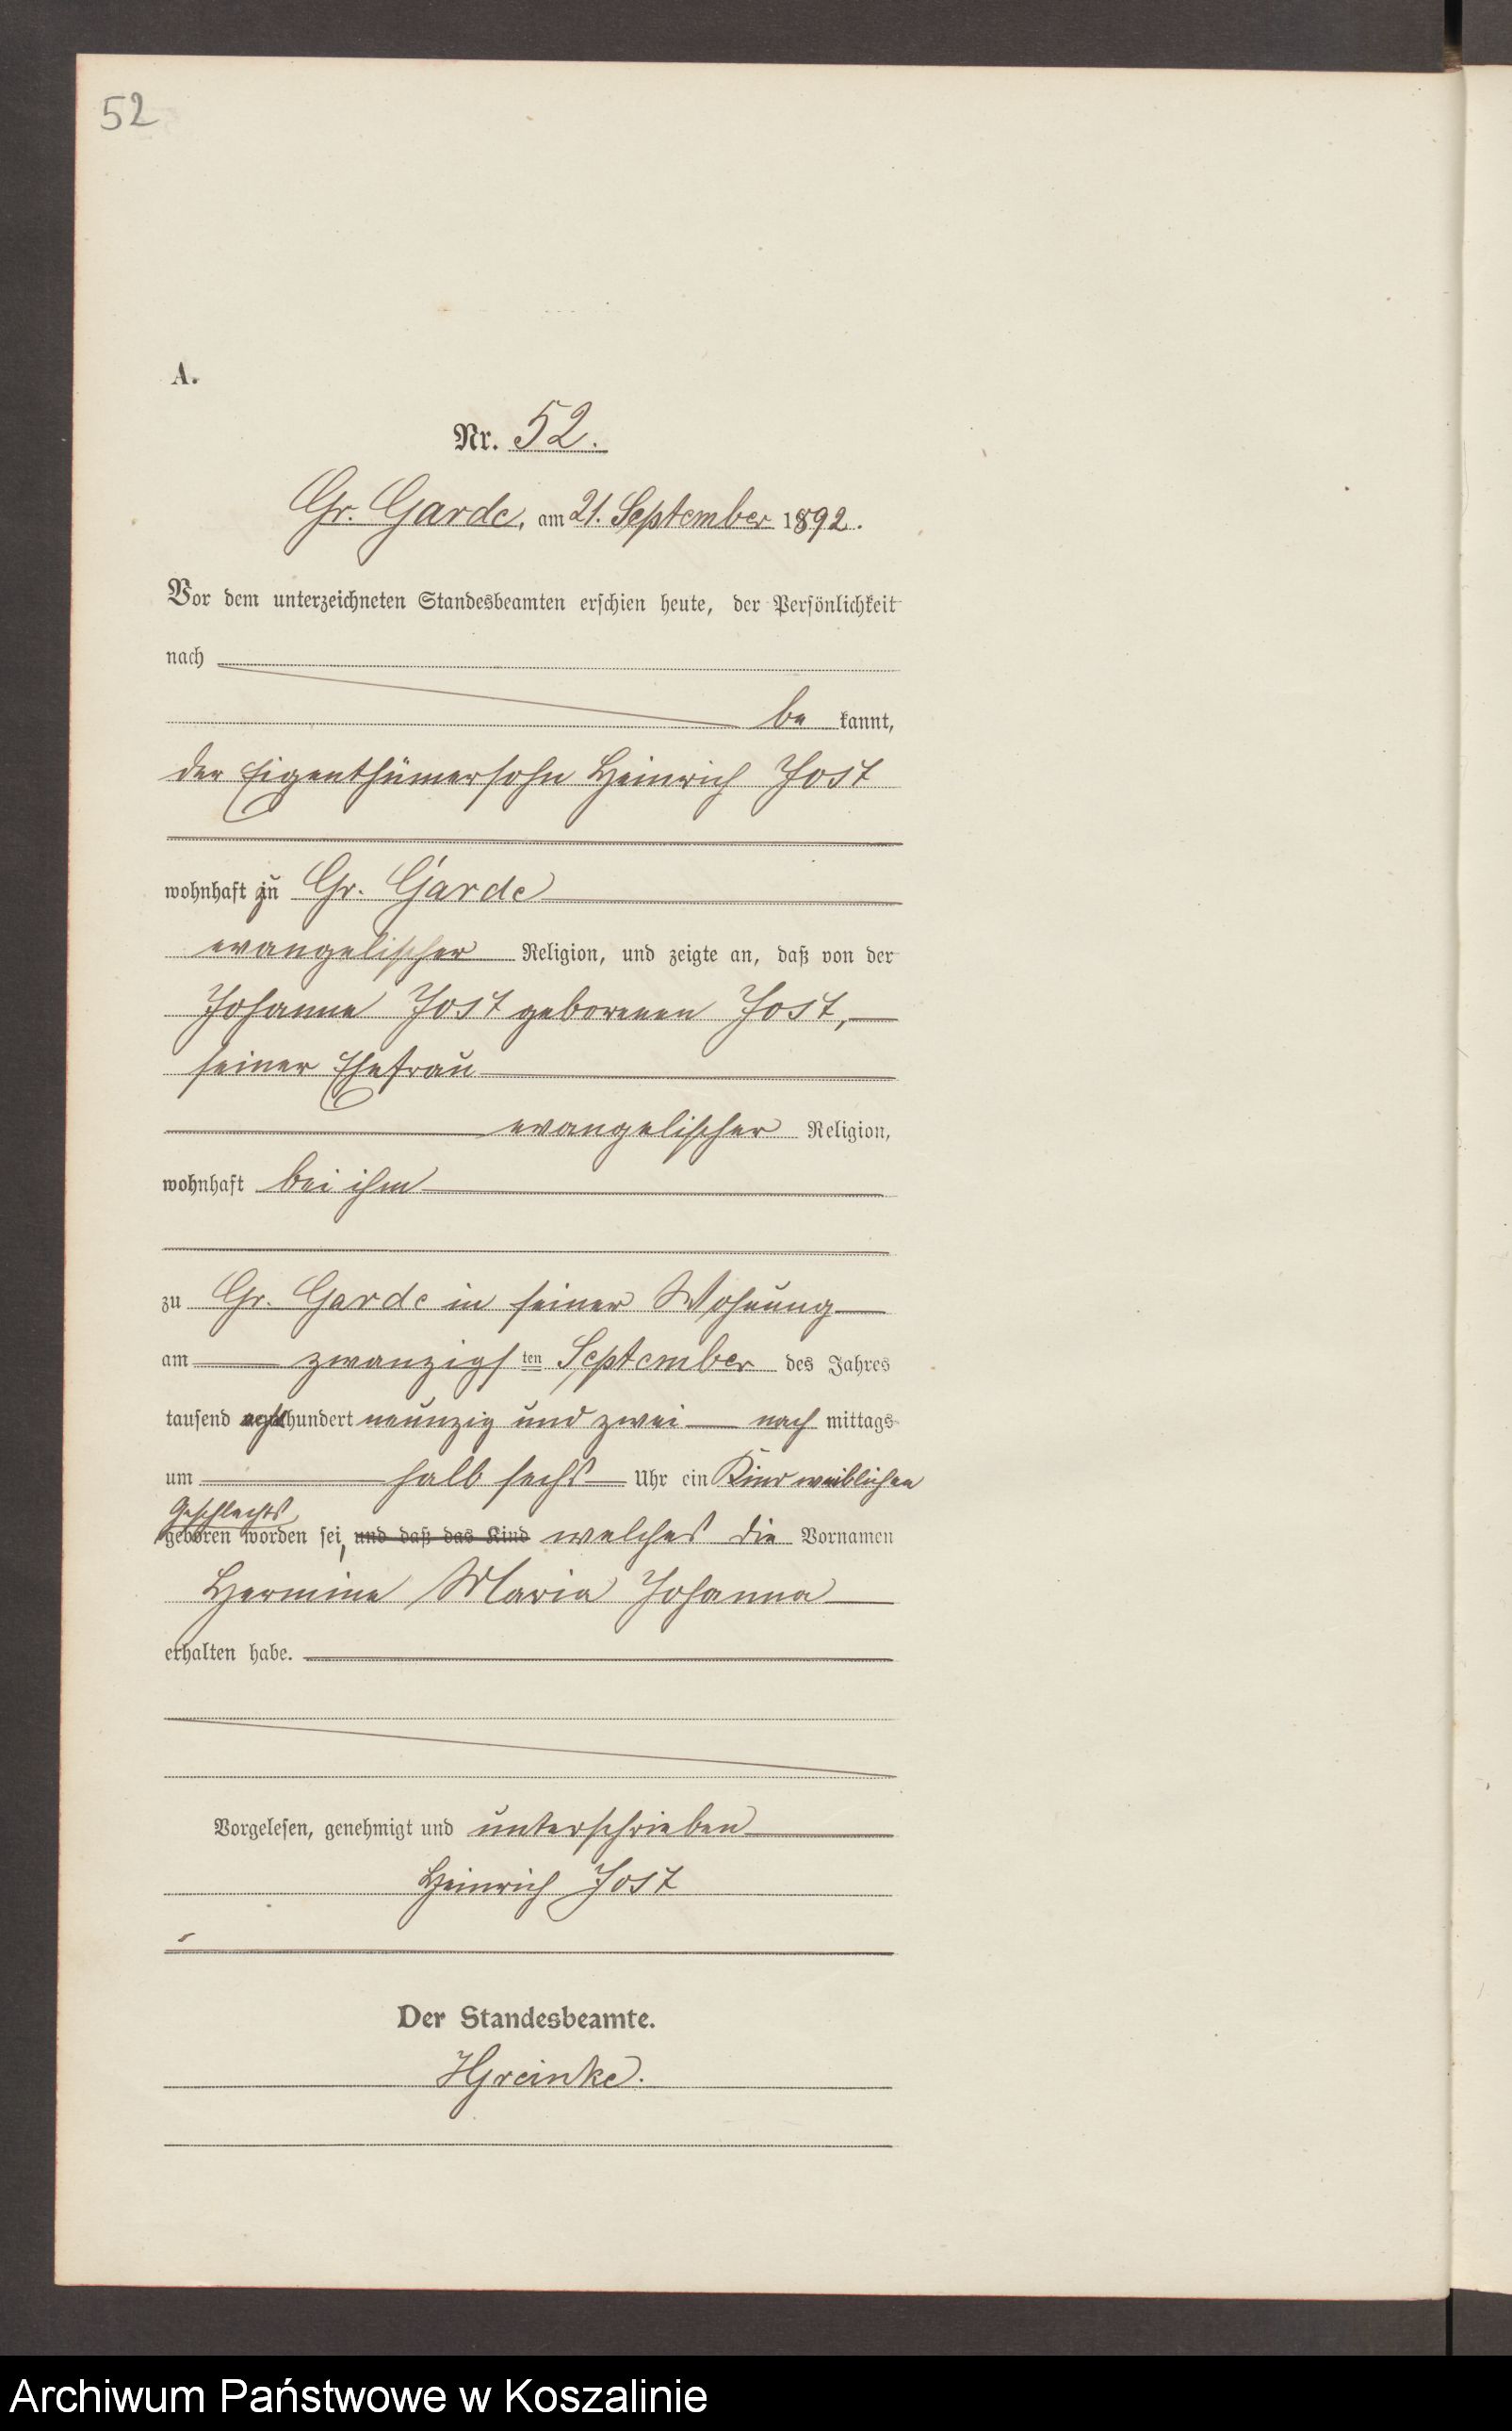 52
A.
Nr. 52.
Gr. Garde, am 21. September 1892.
Vor dem unterzeichneten Standesbeamten erschien heute, der Persönlichkeit
nach
be kannt,
der Eigenthümersohn Heinrich Jost
wohnhaft zu Gr. Garde
evangelischer Religion, und zeigte an, daß von der
Johanne Jost geborenen Jost,
seiner Ehefrau
evangelischer Religion,
wohnhaft bei ihm
zu Gr. Garde in seiner Wohnung
am zwanzigs ten September des Jahres
tausend acht hundert neunzig und zwei nach mittags
um halb sechs Uhr ein Kind weiblichen
Geschlechts
geboren worden sei, und daß das Kind welches die Vornamen
Hermine Maria Johanna
erhalten habe.
Vorgelesen, genehmigt und unterschrieben
Heinrich Jost
Der Standesbeamte.
Archiwum Państwowe w Koszalinie